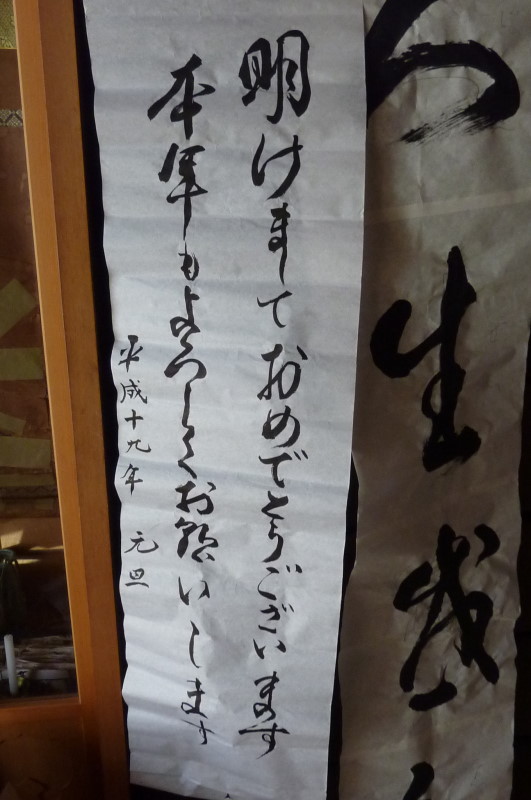 明けましておめでとうございます
本年もよろしくお願いします
平成十九年 元旦
生